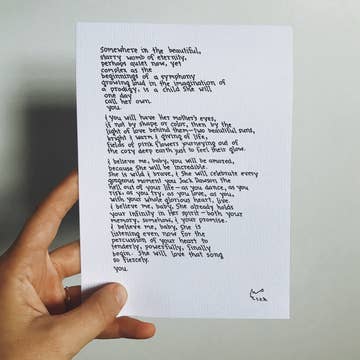 somewhere in the beautiful,
starry womb of eternity,
perhaps quiet now, yet
complex as the
beginnings of a symphony
growing loud in the imagination of
a prodigy, is a child she will
one day
call her own.
you.
you will have her mother's eyes,
if not by shape or color, then by the
light of love behind them—two beautiful suns,
bright & warm & giving of life,
fields of pink flowers journeying out of
the cozy deep earth just to feel their glow.
i believe me, baby, you will be amazed,
because she will be incredible.
she is wild & brave, & she will celebrate every
gorgeous moment you Jack Dawson, the
hell out of your life—as you dance, as you
risk, as you try, as you love, as you,
with your whole glorious heart, live.
i believe me, baby, she already holds
your infinity in her spirit—both your
memory, somehow, & your promise.
i believe me, baby, she is
listening even now for the
percussion of your heart to
tenderly, powerfully, finally
begin. She will love that song
so fiercely.
you.